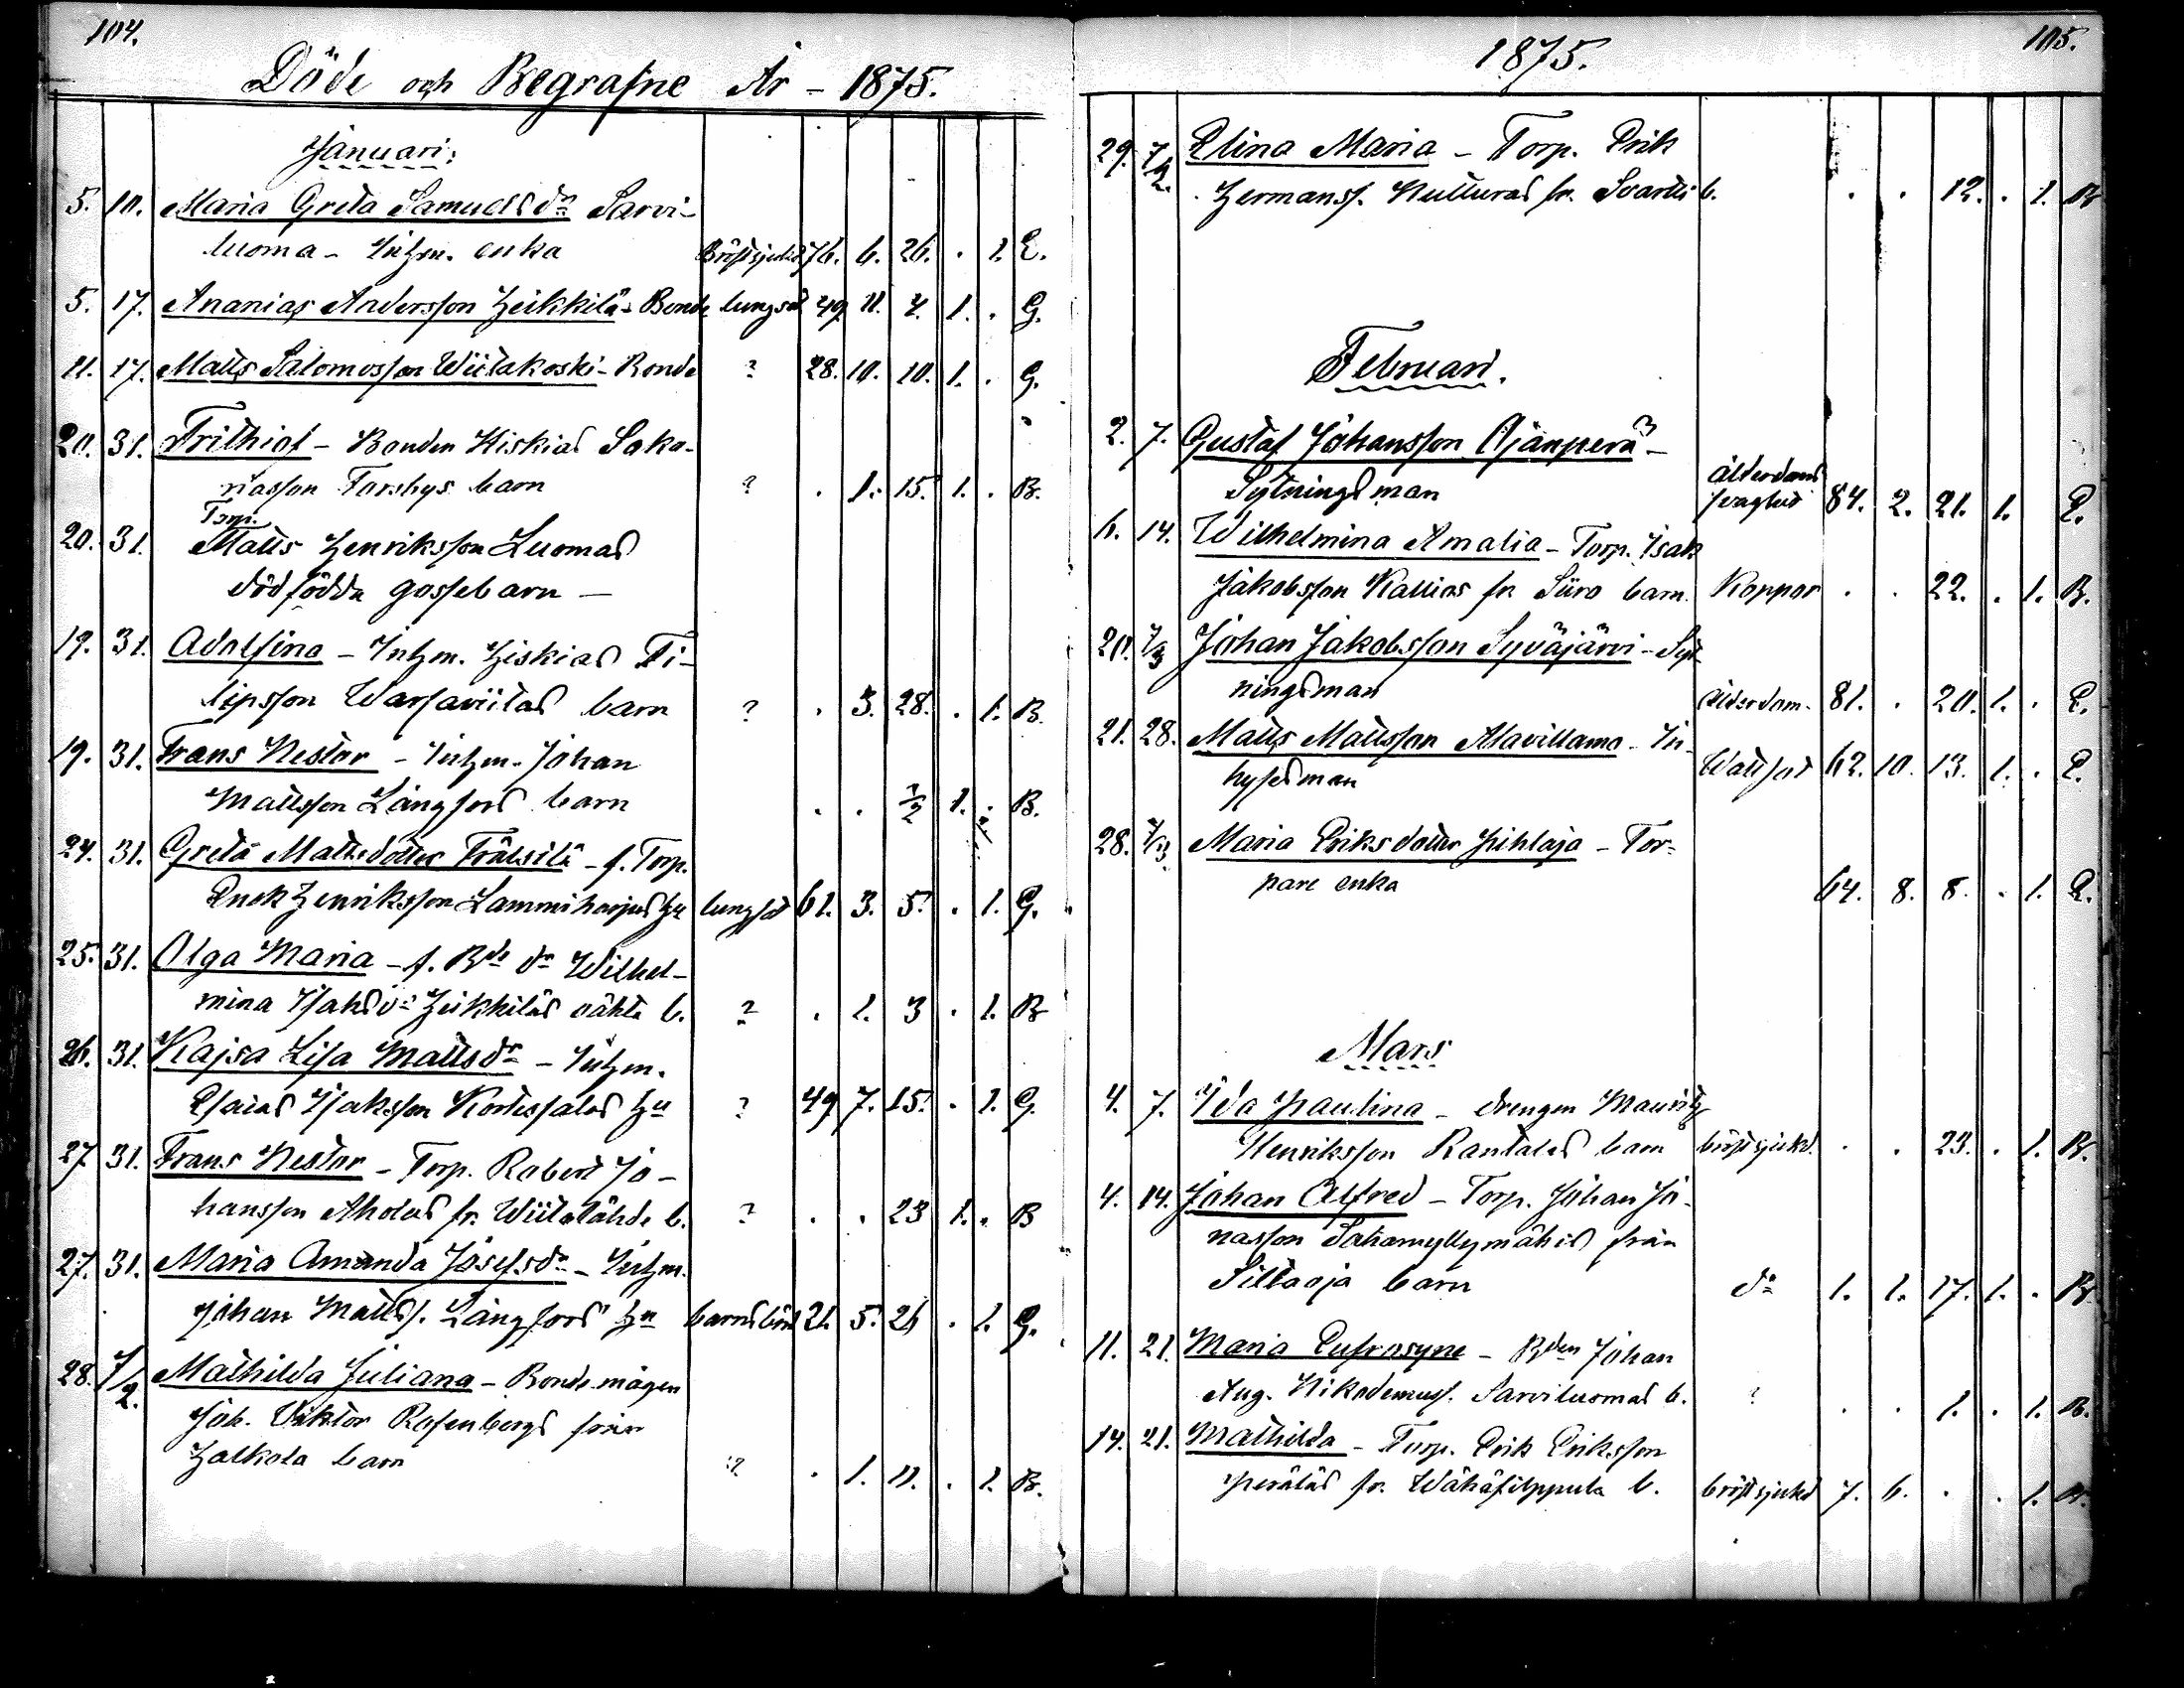 104.
Döde och Begrafne År - 1875.
Januari:
5. 10. Maria Greta Samuelsdr Sarvi-
luoma - Inhm. enka Bröstsjukd. 76. 6. 26. . 1. E.
5. 17. Ananias Andersson Heikkilä - Bonde lungsot 49. 11. 4. 1. . G.
11. 17. Matts Salomosson Wiitakoski - Bonde ? 28. 10. 10. 1. . G.
20. 31. Frithiof - Bonden Hiskias Saka-
riasson Forsbys barn ? . 1. 15. 1. . B.
Torp.
20. 31. Matts Henriksson Luomas
dödfödda gossebarn -
19. 31. Adolfina - Inhm. Hiskias Fi-
lipsson Warsaviitas barn ? . 3. 28. . 1. B.
19. 31. Frans Nestor - Inhm. Johan
Mattsson Långfors barn . . 1/2 1. . B.
24. 31. Greta Mattsdotter Träbsilä - f. Torp.
Enok Henriksson Lammiharjus hu lungsot 61. 3. 5. . 1. G.
25. 31. Olga Maria - f. Bde dr Wilhel-
mina Isaksdr Heikkiläs oäkta b. ? . 1. 3 . 1. B
26. 31. Kajsa Lisa Mattsdr - Inhm.
Esaias Isaksson Kortessalos hu ? 49 7. 15. . 1. G.
27 31. Frans Nestor - Torp. Robert Jo-
hansson Aholas fr. Wiitalähde b. ? . . 23 1. . B
27. 31. Maria Amanda Josefsdr - Inhm.
Johan Mattss. Långfors' hu barnsbörd 21. 5. 26 . 1. G.
28. 7/2. Mathilda Juliana - Bonde mågen
Joh. Viktor Rosenbergs från
Halkola barn ? . 1. 11. . 1. B.
1875. 105.
29. 7/2. Elina Maria - Torp. Erik
Hermanss. Kulluras fr. Svartti b. . . 12. . 1. B
Februari.
2. 7. Gustaf Johansson Ojanperä -
Sytningsman ålderdoms svaghet 84. 2. 21. 1. E.
6. 14. Wilhelmina Amalia - Torp. Isak
Jakobsson Kallios fr. Siiro barn. Koppor . . 22. . 1. B.
20. 7/3 Johan Jakobsson Syväjärvi - Syt-
ningsman ålderdom. 81. . 20. 1. . E.
21. 28. Matts Mattsson Alavillamo - In-
hysesman Wattsot 62. 10. 13. 1. . E.
28. 7/3 Maria Eriksdotter Pihlaja - Tor-
pare enka 64. 8. 8. . 1. E.
Mars
4. 7. Ida Paulina - drengen Mauritz
Henriksson Rantalas barn bröstsjukd. . . 23. . 1. B.
4. 14. Johan Alfred - Torp. Johan Jo-
nasson Sahamyllymäkis från
Sillaoja barn do 1. 1. 17. 1. . B.
11. 21. Maria Eufrosyne - Bden Johan
Aug. Nikodemuss. Sarviluomas b. ? . . 1. . 1. B.
14. 21. Mathilda - Torp. Erik Eriksson
Peräläs fr. Wähäfilppula b. bröstsjukd 7. 6. . . 1. B.